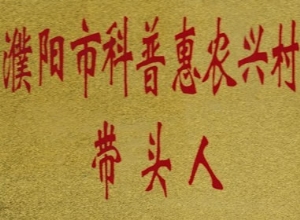 濮阳市科普惠农兴村
带头人